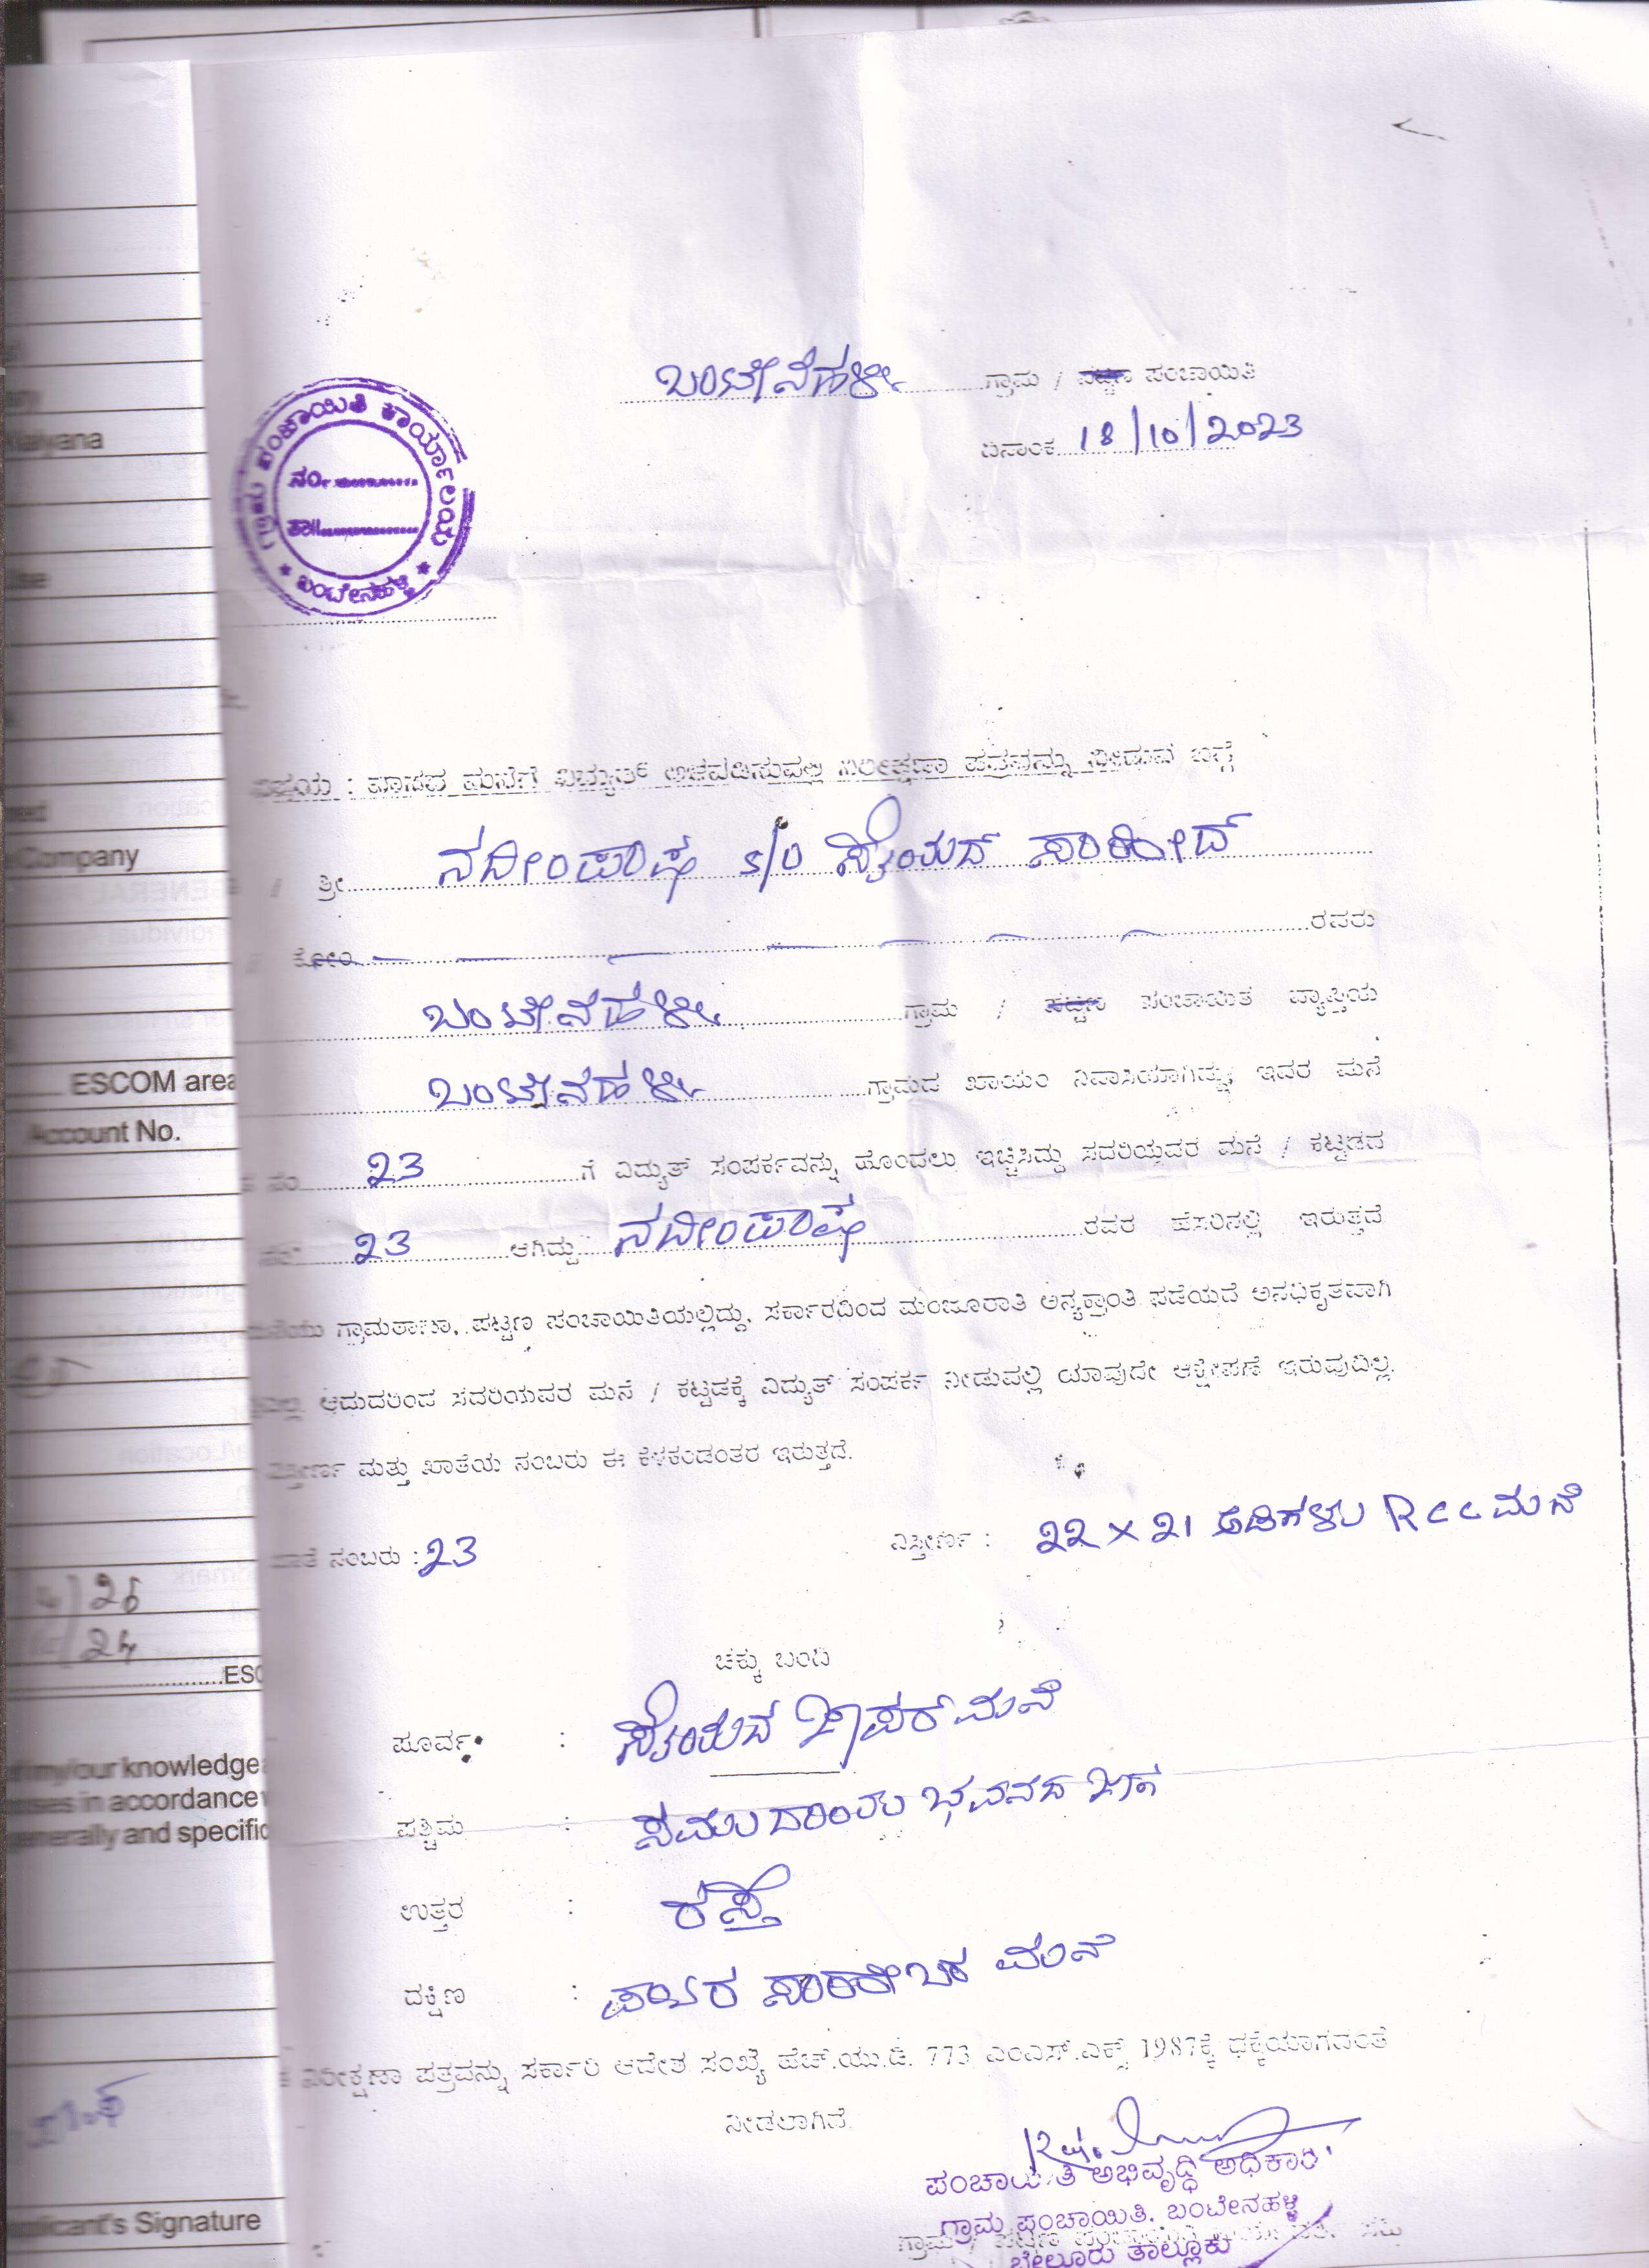 ಬಂಟೇನಹಳ್ಳಿ ಗ್ರಾಮ / ಪಟ್ಟಣ ಪಂಚಾಯಿತಿ
ದಿನಾಂಕ 18/10/2023
ಗ್ರಾಮ ಪಂಚಾಯಿತಿ ಕಾರ್ಯಾಲಯ
ನಂ.
ತಾ||
* ಬಂಟೇನಹಳ್ಳಿ *
ವಿಷಯ : ವಾಸದ ಮನೆಗೆ ವಿದ್ಯುತ್ ಅಳವಡಿಸುವಲ್ಲಿ ನಿರೀಕ್ಷಣಾ ಪತ್ರವನ್ನು ನೀಡುವ ಬಗ್ಗೆ
/ ಶ್ರೀ ನದೀಂಪಾಷ s/o ಸೈಯದ್
ಕೋಂ ರವರು
ಬಂಟೇನಹಳ್ಳಿ ಗ್ರಾಮ / ಪಟ್ಟಣ ಪಂಚಾಯಿತಿ ವ್ಯಾಪ್ತಿಯ
ಬಂಟೇನಹಳ್ಳಿ ಗ್ರಾಮದ ಖಾಯಂ ನಿವಾಸಿಯಾಗಿದ್ದು, ಇವರ ಮನೆ
ನಂ 23 ಗೆ ವಿದ್ಯುತ್ ಸಂಪರ್ಕವನ್ನು ಹೊಂದಲು ಇಚ್ಛಿಸಿದ್ದು ಸದರಿಯವರ ಮನೆ / ಕಟ್ಟಡದ
23 ಆಗಿದ್ದು ನದೀಂಪಾಷ ರವರ ಹೆಸರಿನಲ್ಲಿ ಇರುತ್ತದೆ
ಗ್ರಾಮಠಾಣಾ, ಪಟ್ಟಣ ಪಂಚಾಯಿತಿಯಲ್ಲಿದ್ದು, ಸರ್ಕಾರದಿಂದ ಮಂಜೂರಾತಿ ಅನ್ಯಕ್ರಾಂತಿ ಪಡೆಯದೆ ಅನಧಿಕೃತವಾಗಿ
ಆದುದರಿಂದ ಸದರಿಯವರ ಮನೆ / ಕಟ್ಟಡಕ್ಕೆ ವಿದ್ಯುತ್ ಸಂಪರ್ಕ ನೀಡುವಲ್ಲಿ ಯಾವುದೇ ಆಕ್ಷೇಪಣೆ ಇರುವುದಿಲ್ಲ.
ವಿಸ್ತೀರ್ಣ ಮತ್ತು ಖಾತೆಯ ನಂಬರು ಈ ಕೆಳಕಂಡಂತಿರ ಇರುತ್ತದೆ.
ಖಾತೆ ನಂಬರು : 23 ವಿಸ್ತೀರ್ಣ : 22 x 21 ಅಡಿಗಳು RCC ಮನೆ
ಚಕ್ಕು ಬಂದಿ
ಪೂರ್ವ : ಸೈಯದ ಮನೆ
ಪಶ್ಚಿಮ : ಸಮುದಾಯ ಭವನದ ಜಾಗ
ಉತ್ತರ : ರಸ್ತೆ
ದಕ್ಷಿಣ : ಮನೆ
ನಿರೀಕ್ಷಣಾ ಪತ್ರವನ್ನು ಸರ್ಕಾರಿ ಆದೇಶ ಸಂಖ್ಯೆ ಹೆಚ್.ಯು.ಡಿ. 773 ಎಂಎಸ್.ಎಕ್ಸ್ 1987ಕ್ಕೆ ಧಕ್ಕೆಯಾಗದಂತೆ
ನೀಡಲಾಗಿದೆ.
ಪಂಚಾಯಿತಿ ಅಭಿವೃದ್ಧಿ ಅಧಿಕಾರಿ
ಗ್ರಾಮ ಪಂಚಾಯಿತಿ, ಬಂಟೇನಹಳ್ಳಿ
ಬೇಲೂರು ತಾಲ್ಲೂಕು
Company
ESCOM area
Account No.
26
24
ESC
my/our knowledge
in accordance
generally and specific
Applicant's Signature